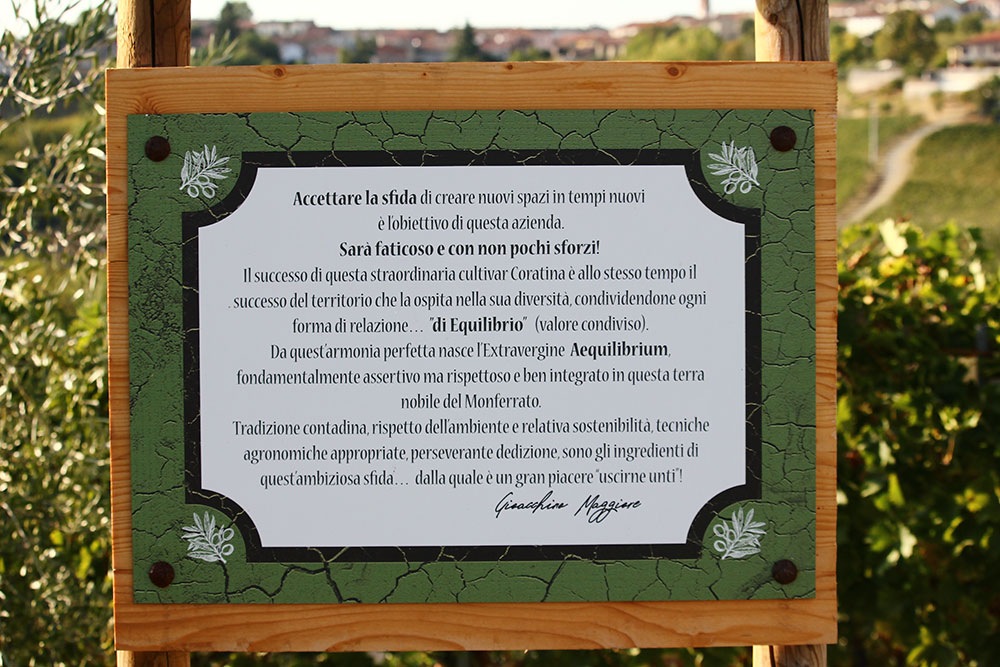 Accettare la sfida di creare nuovi spazi in tempi nuovi
è l'obiettivo di questa azienda.
Sarà faticoso e con non pochi sforzi!
Il successo di questa straordinaria cultivar Coratina è allo stesso tempo il
successo del territorio che la ospita nella sua diversità, condividendone ogni
forma di relazione... "di Equilibrio" (valore condiviso).
Da quest'armonia perfetta nasce l'Extravergine Aequilibrium,
fondamentalmente assertivo ma rispettoso e ben integrato in questa terra
nobile del Monferrato.
Tradizione contadina, rispetto dell'ambiente e relativa sostenibilità, tecniche
agronomiche appropriate, perseverante dedizione, sono gli ingredienti di
quest'ambiziosa sfida... dalla quale è un gran piacere "uscirne unti"!
Gioacchino Maggiore